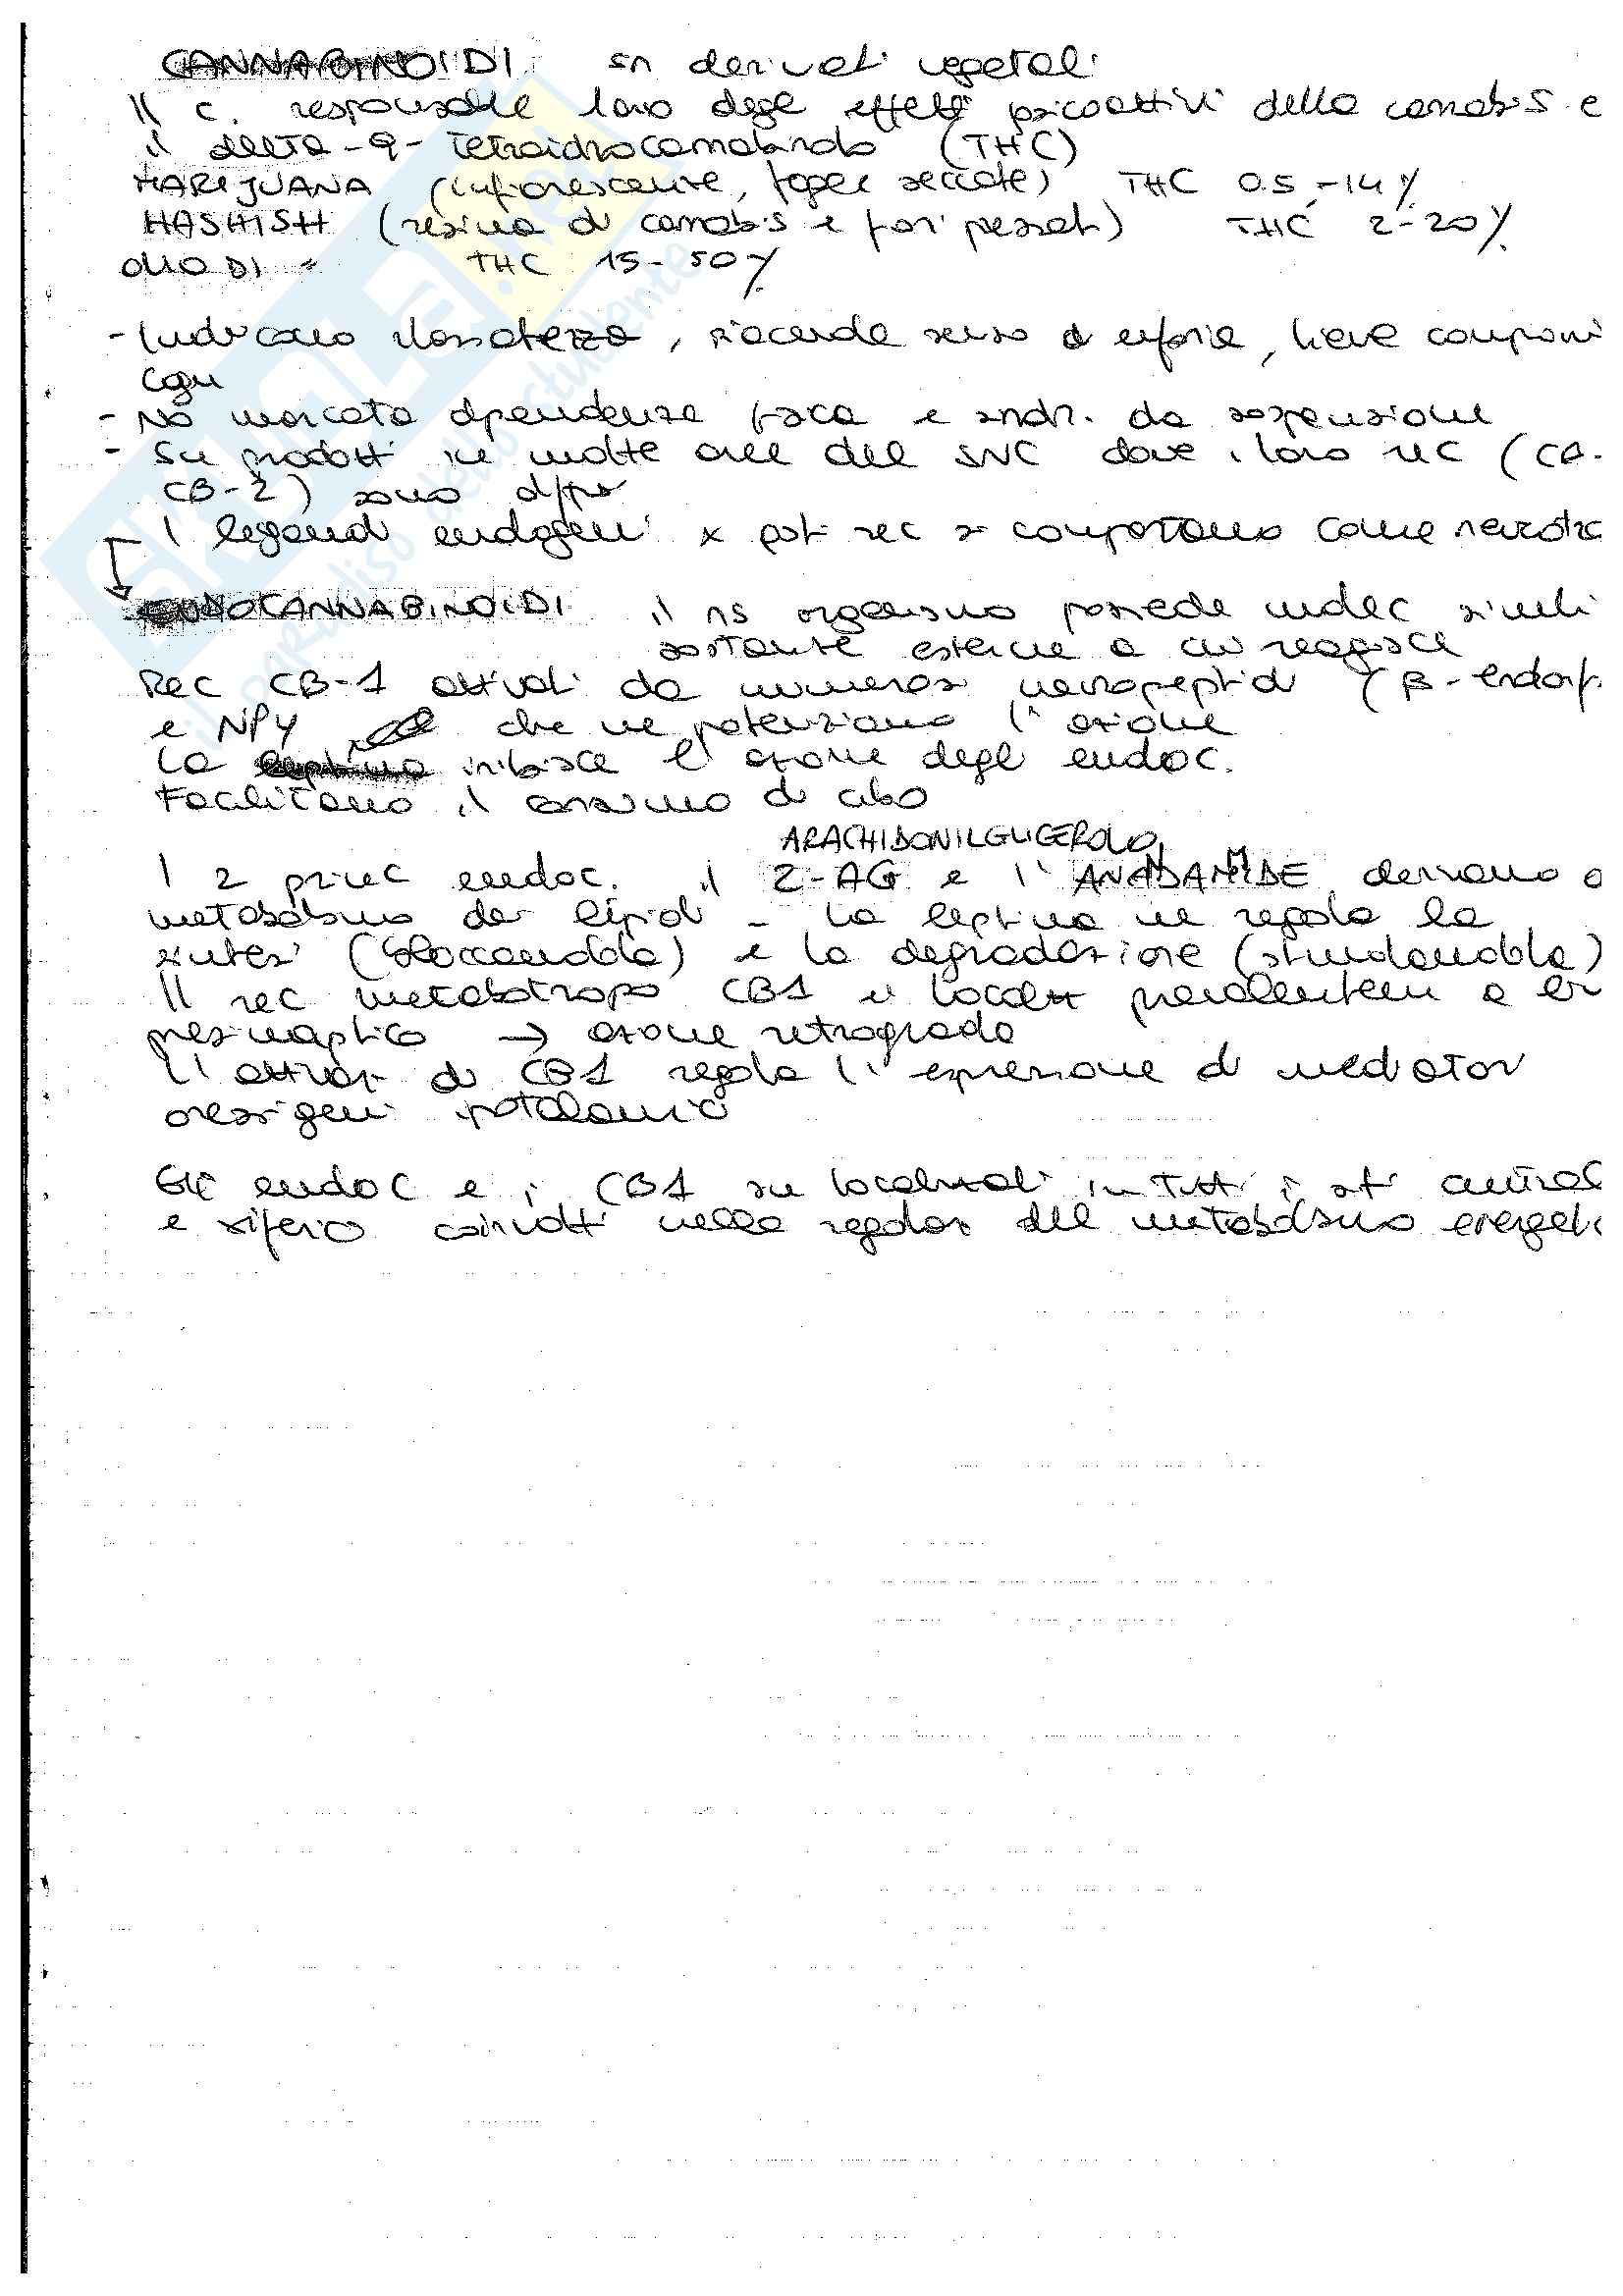 CANNABINOIDI sn derivati vegetali
Il c. responsabile degli effetti psicoattivi della cannabis e
il delta-9-tetraidrocannabinolo (THC)
MARIJUANA (infiorescenze, foglie seccate) THC 0.5-14%
HASHISH (resina di cannabis e fiori pressati) THC 2-20%
OLIO DI " THC 15-50%
- Inducono rilassatezza, piacevole senso di euforia, lieve
- No marcata dipendenza fisica e sindr. da sospensione
- Sn prodotti in molte aree del SNC dove i loro rec (CB-
CB-2) sono
I legandi endogeni x qsti rec si comportano come neurotra
ENDOCANNABINOIDI il ns organismo possiede molec simili
sostanze esterne a cui reagisce
Rec CB-1 attivati da numerosi neuropeptidi (β-endorf
e NPY che ne potenziano l'azione
La leptina inibisce l'azione degli endoc.
Facilitano il consumo di cibo
ARACHIDONILGLICEROLO
I 2 princ endoc. il 2-AG e l'ANANDAMIDE derivano
metabolismo dei lipidi - La leptina ne regola la
sintesi (bloccandola) e la degradazione (stimolandola)
Il rec metabotropo CB1 è localizz prevalentem a
presinaptico → azione retrograda
L'attivaz di CB1 regola l'espressione di mediatori
oressigeni ipotalamici
Gli endoc e i CB1 sn localizzati in tutti i siti centrali
e periferici coinvolti nella regolaz del metabolismo energeti